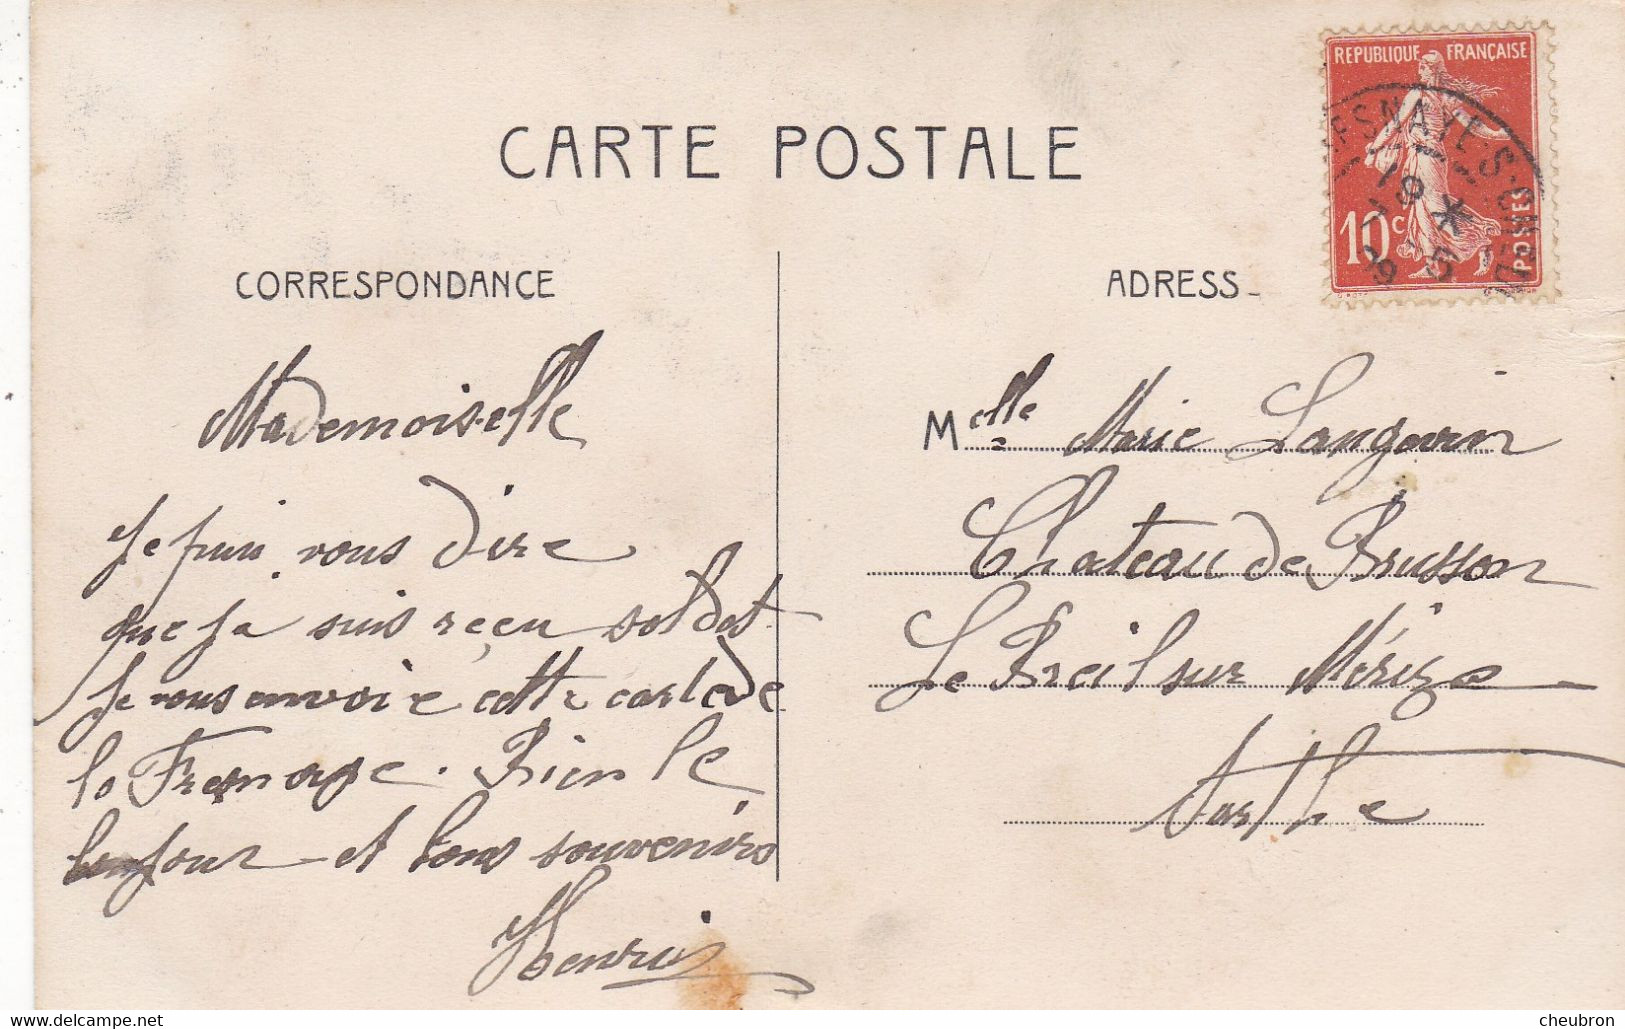 CARTE POSTALE
REPUBLIQUE FRANÇAISE
10c
POSTES
FRESNAYE-S-CHED
CORRESPONDANCE
ADRESS
Mademoiselle
Je puis vous dire
que ja suis reçeu soldat
Je vous envoie cette carte de
la Fresnaye. Bien le
bonjour et bons souvenirs
Henri
Melle Marie Langevin
Chateau de Brusson
Le Breil sur Mérize
Sarthe
www.delcampe.net
cheubron